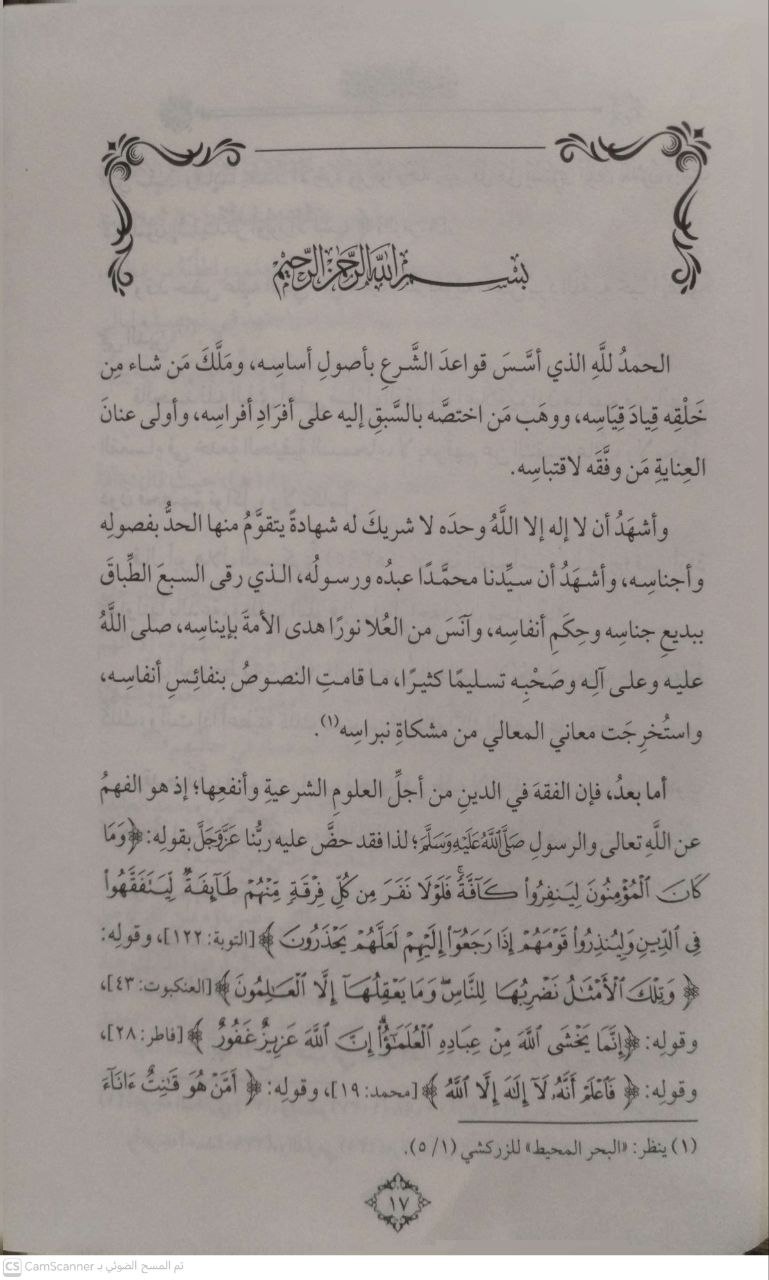 بسم الله الرحمن الرحيم
الحمدُ للَّهِ الذي أسَّسَ قواعدَ الشَّرعِ بأصولِ أساسِه، ومَلَّكَ مَن شاء مِن
خَلْقِه قِيادَ قِيَاسِه، ووهَب مَن اختصَّه بالسَّبقِ إليه على أفرَادِ أفراسِه، وأولى عنانَ
العِنايةِ مَن وفَّقَه لاقتباسِه.
وأشهَدُ أن لا إله إلا اللَّهُ وحدَه لا شريكَ له شهادةً يتقوَّمُ منها الحدُّ بفصولِه
وأجناسِه، وأشهَدُ أن سيِّدنا محمَّدًا عبدُه ورسولُه، الذي رقى السبعَ الطِّباقَ
ببديعِ جناسِه وحِكَمِ أنفاسِه، وآنَسَ من العُلا نورًا هدى الأمةَ بإيناسِه، صلى اللَّهُ
عليه وعلى آلِه وصَحْبِه تسليمًا كثيرًا، ما قامتِ النصوصُ بنفائسِ أنفاسِه،
واستُخرِجَت معاني المعالي من مشكاةِ نبراسِه(١).
أما بعدُ، فإن الفقهَ في الدينِ من أجلِّ العلومِ الشرعيةِ وأنفعِها؛ إذ هو الفهمُ
عن اللَّهِ تعالى والرسولِ صَلَّى اللَّهُ عَلَيْهِ وَسَلَّمَ؛ لذا فقد حضَّ عليه ربُّنا عَزَّ وَجَلَّ بقولِه: ﴿وَمَا
كَانَ ٱلْمُؤْمِنُونَ لِيَنفِرُوا۟ كَآفَّةً ۚ فَلَوْلَا نَفَرَ مِن كُلِّ فِرْقَةٍ مِّنْهُمْ طَآئِفَةٌ لِّيَتَفَقَّهُوا۟
فِى ٱلدِّينِ وَلِيُنذِرُوا۟ قَوْمَهُمْ إِذَا رَجَعُوٓا۟ إِلَيْهِمْ لَعَلَّهُمْ يَحْذَرُونَ﴾ [التوبة: ١٢٢]، وقولِه:
﴿وَتِلْكَ ٱلْأَمْثَـٰلُ نَضْرِبُهَا لِلنَّاسِ ۖ وَمَا يَعْقِلُهَآ إِلَّا ٱلْعَـٰلِمُونَ﴾ [العنكبوت: ٤٣]،
وقولِه: ﴿إِنَّمَا يَخْشَى ٱللَّهَ مِنْ عِبَادِهِ ٱلْعُلَمَـٰٓؤُا۟ ۗ إِنَّ ٱللَّهَ عَزِيزٌ غَفُورٌ﴾ [فاطر: ٢٨]،
وقولِه: ﴿فَٱعْلَمْ أَنَّهُۥ لَآ إِلَـٰهَ إِلَّا ٱللَّهُ﴾ [محمد: ١٩]، وقولِه: ﴿أَمَّنْ هُوَ قَـٰنِتٌ ءَانَآءَ
(١) ينظر: «البحر المحيط» للزركشي (١/ ٥).
١٧
CS CamScanner تم المسح الضوئي بـ